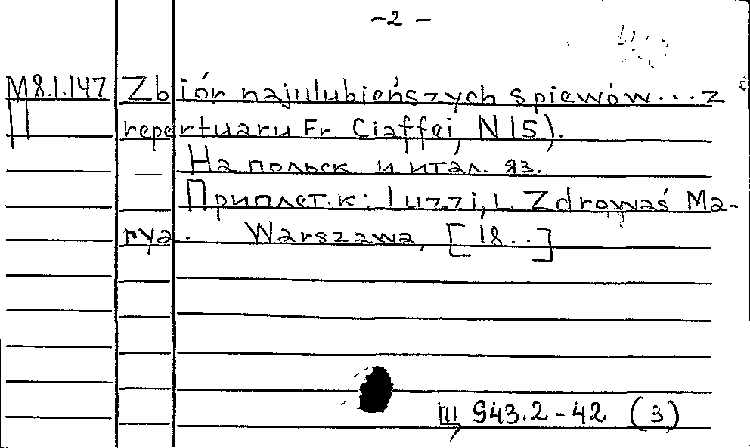 -2-
M8.1.147 Zbiór najulubieńszych śpiewów... z
II repertuaru Fr Ciaffei, N15).
На польск. и итал. яз.
Приплет. к: Luzzi, L. Zdrowaś Ma-
rya. Warszawa, [18..]
Ш 943.2-42 (3)